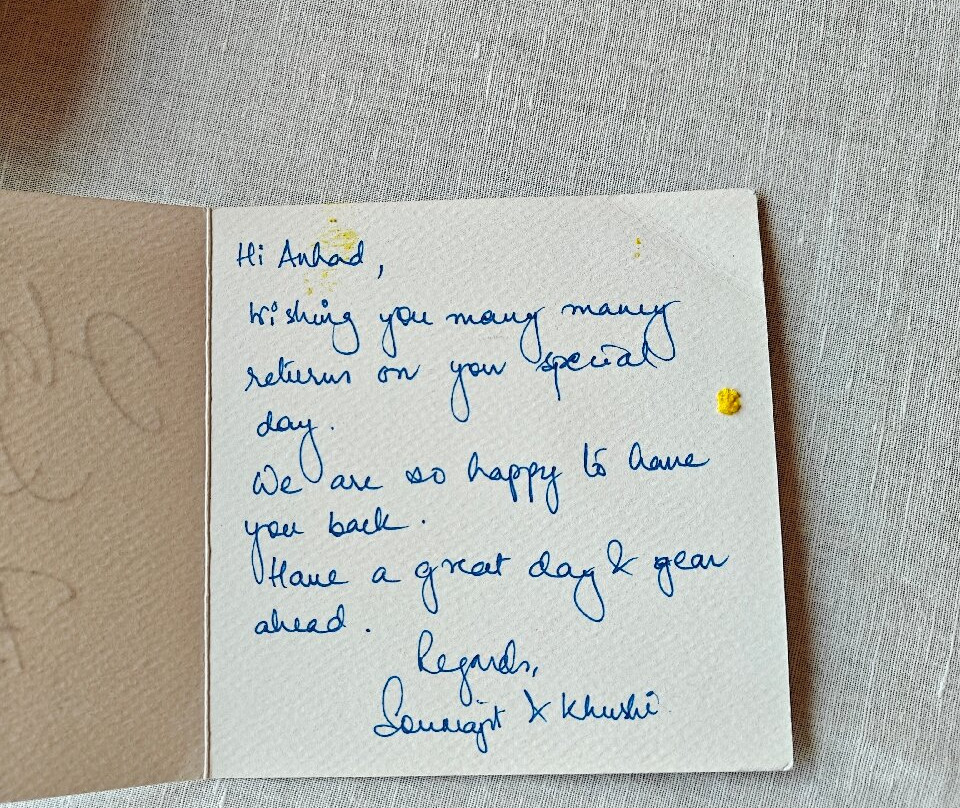 Hi Anhad,
Wishing you many many
returns on your special
day.
We are so happy to have
you back.
Have a great day & year
ahead.
Regards,
Soumajit & Khushi